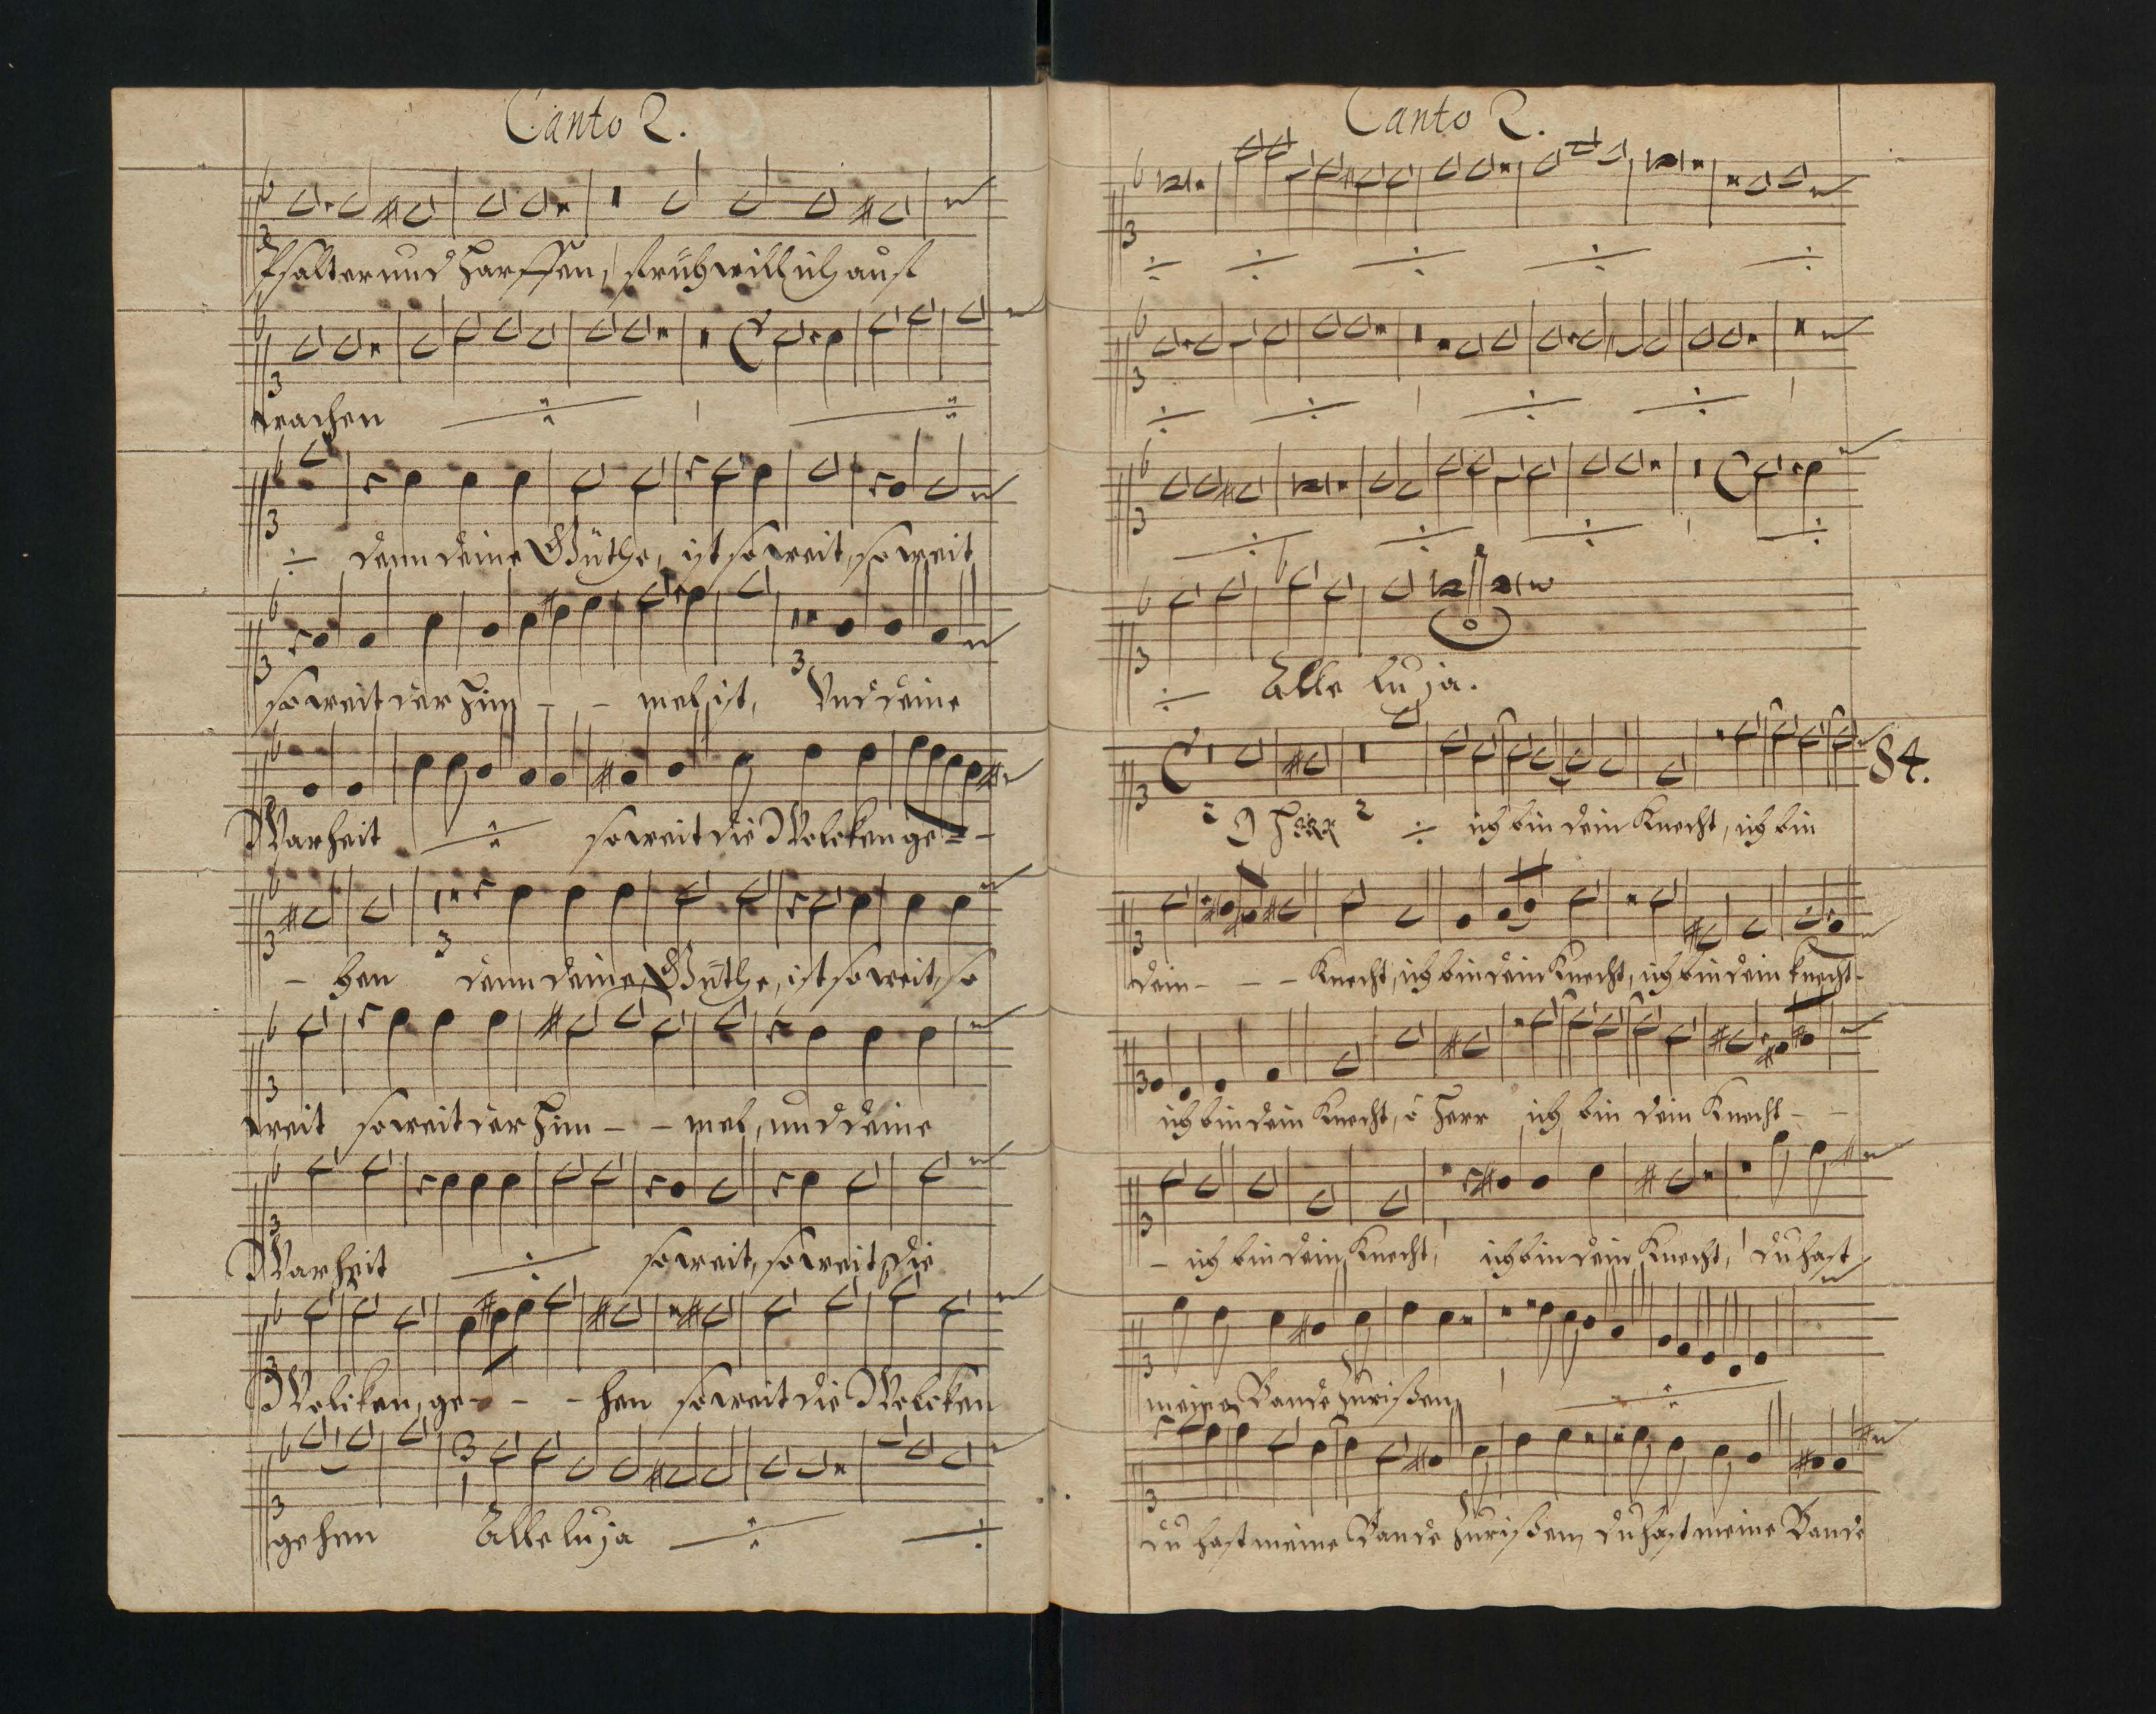 Canto 2.
Psalter und Harffen, fruh will ich auf
wachen
denn deine Güthe, ist so weit, so weit
so weit der Him - - mel ist, Und deine
Warheit so weit die Wolcken ge - -
- hen denn deine Güthe, ist so weit, so
weit so weit der Him - - mel, und deine
Warheit so weit, so weit die
Wolcken, ge - - - hen so weit die Wolcken
gehen Alleluja
Canto 2.
Alle luja.
84.
O Herr ich bin dein Knecht, ich bin
dein - - - Knecht, ich bin dein Knecht, ich bin dein knecht -
ich bin dein Knecht, ô Herr ich bin dein Knecht - -
- ich bin dein Knecht, ich bin dein Knecht, du hast
meine Bande zurißen,
du hast meine Bande zurißen, du hast meine Bande